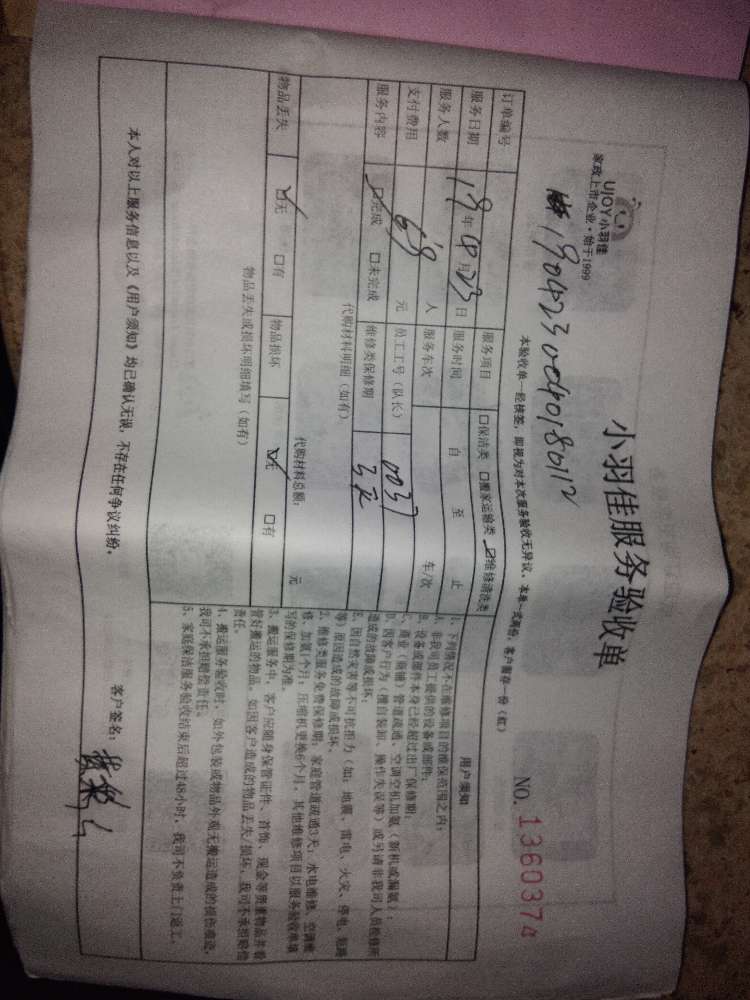 UJOY小羽佳
家政上市企业·始于1999
小羽佳服务验收单
NO. 1360374
本验收单一经核签，即视为对本次服务验收无异议。本单一式两份，客户留存一份（红）
订单编号
190423
服务项目 □保洁类 □搬家运输类 ☑维修清洗类
服务日期 19年04月23日 服务时间 自 至 止
服务人数 人 服务车次 车/次
支付费用 68 元 员工工号（队长） 0037
服务内容 ☑完成 □未完成 维修类保修期 3天
代购材料明细（如有）
代购材料总额： 元
物品丢失 ☑无 □有 物品损坏 ☑无 □有
物品丢失或损坏明细填写（如有）
用户须知
1、下列情况不在维修项目的维保范围之内：
A、非我司员工提供的设备或部件；
B、设备或部件本身已经超过出厂保修期；
C、商业（商铺）管道疏通、空调空机加氨（新机或漏氨）；
D、因客户行为（擅自装卸、操作失误等）或另请非我司人员检修所
造成的故障或损坏；
E、因自然灾害等不可抗拒力（如：地震、雷电、火灾、停电、短路
等）原因造成的故障或损坏。
2、维修类服务免费保修期：家庭管道疏通3天；水电维修、空调维
修、加氨1个月；压缩机更换6个月。其他维修项目以服务验收单填
写的保修期为准。
3、搬运服务中，客户应随身保管证件、首饰、现金等贵重物品并看
管好搬运的物品。如因客户造成的物品丢失/损坏，我司不承担赔偿
责任。
4、搬运服务验收时，如外包装或物品外观无搬运造成的损伤痕迹，
我司不承担赔偿责任。
5、家庭保洁服务验收结束后超过48小时，我司不负责上门返工。
本人对以上服务信息以及《用户须知》均已确认无误，不存在任何争议纠纷。
客户签名：